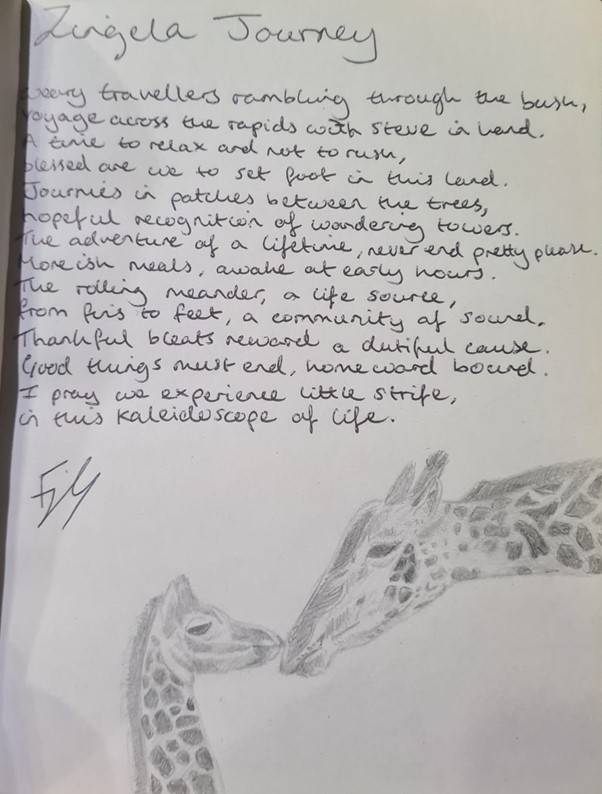 Zingela Journey
Weary travellers rambling through the bush,
voyage across the rapids with Steve in hand.
A time to relax and not to rush,
blessed are we to set foot in this land.
Journies in patches between the trees,
hopeful recognition of wandering towers.
The adventure of a lifetime, never end pretty please.
Moreish meals, awake at early hours.
The rolling meander, a life source,
from fins to feet, a community of sound.
Thankful bleats reward a dutiful cause.
Good things must end, homeward bound.
I pray we experience little strife,
in this kaleidoscope of life.